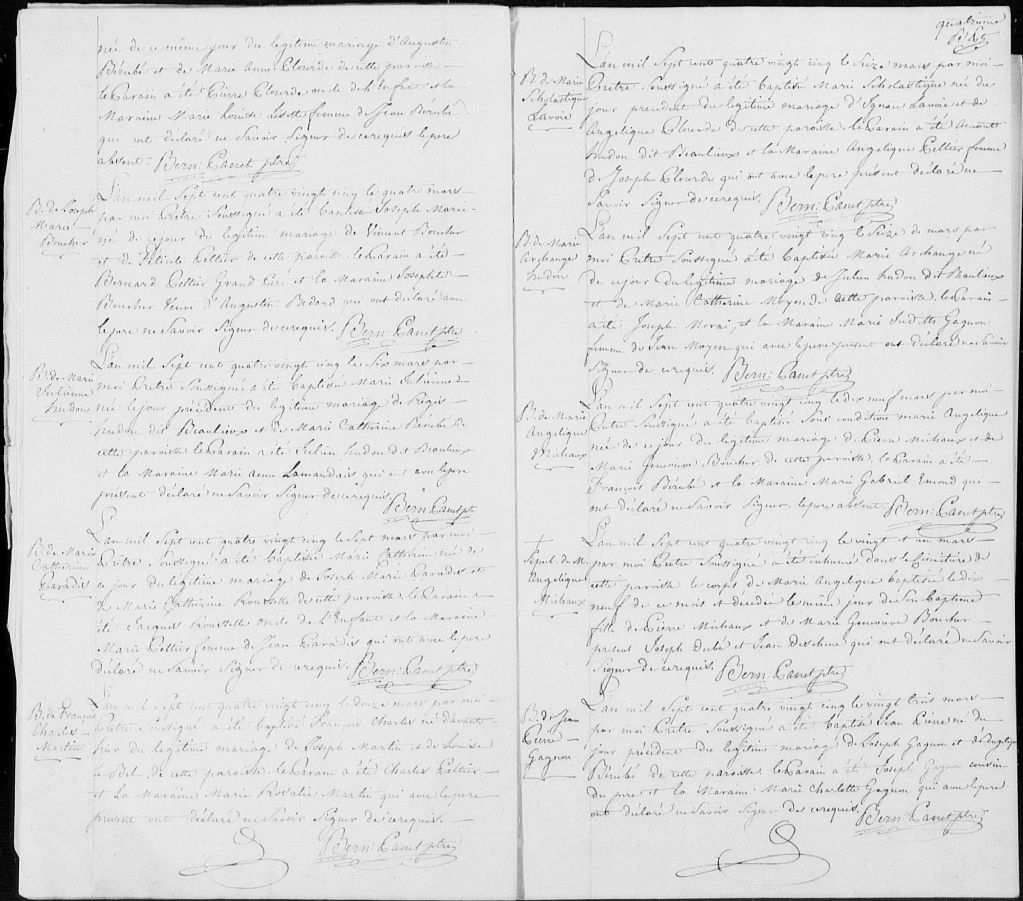 née de ce même jour du legitime mariage d'Augustin
Bérubé et de Marie Anne Plourde de cette paroisse
le Parain a été Pierre Plourde oncle de l'Enfant et la
Maraine Marie Louise femme de Jean Bérubé
qui ont déclaré ne Savoir Signer de ce requis le pere
absent. Bern: Panet ptre
B. de Joseph
Marie
Boucher
L'an mil Sept cent quatre vingt cinq le quatre mars
par moi Prêtre Soussigné a été baptisé Joseph Marie
né de ce jour du legitime mariage de Vincent Boucher
et de Felicité Pelletier de cette paroisse le Parain a été
Bernard Peltier Grand Pere et la Maraine Josephte
Boucher Veuve d'Augustin Bedard qui ont déclaré avec
le pere ne Savoir Signer de ce requis. Bern: Panet ptre
B. de Marie
Julienne
hudon
L'an mil Sept cent quatre vingt cinq le Six mars par
moi Prêtre Soussigné a été baptisée Marie Julienne
née le jour précédent du legitime mariage de Régis
hudon dit Beaulieux et de Marie Catherine Bérubé de
cette paroisse le Parain a été Julien hudon dit Beaulieux
et la Maraine Marie Anne Lamandais qui ont avec le pere
present déclaré ne Savoir Signer de ce requis.
Bern: Panet ptre
B. de Marie
Catherine
Paradis
L'an mil Sept cent quatre vingt cinq le Sept mars par moi
Prêtre Soussigné a été baptisée Marie Catherine née de
ce jour du legitime mariage de Joseph Marie Paradis et
de Marie Catherine Rousselle de cette paroisse le Parain a
été Jacques Rousselle oncle de L'Enfant et la Maraine
Marie Peltier femme de Jean Paradis qui ont avec le pere
déclaré ne Savoir Signer de ce requis. Bern: Panet ptre
B. de François
Charles
Martin
L'an mil Sept cent quatre vingt cinq le douze mars par moi
Prêtre Soussigné a été baptisé François Charles né d'avant
hier du legitime mariage de Joseph Martin et de Louise
le Bel de cette paroisse le Parain a été Charles Peltier
et La Maraine Marie Rosalie Martin qui avec le pere
présent ont déclaré ne Savoir Signer de ce requis.
Bern: Panet ptre
quatrieme
B. de Marie
Scholastique
Lavoie
L'an mil Sept cent quatre vingt cinq le Seize mars par moi
Prêtre Soussigné a été baptisé Marie Scholastique née du
jour precedent du legitime mariage d'Ignace Lavoie et de
Angelique Plourde de cette paroisse le Parain a été
hudon dit Beaulieux et la Maraine Angelique Peltier femme
de Joseph Plourde qui ont avec le pere présent déclaré ne
Savoir Signer de ce requis. Bern: Panet ptre
B. de Marie
Archange
hudon
L'an mil Sept cent quatre vingt cinq le Seize de mars par
moi Prêtre Soussigné a été baptisée Marie Archange née
de ce jour du legitime mariage de Julien hudon dit Beaulieux
et de Marie Catherine Moyen de cette paroisse le Parain
a été Joseph Morai, et la Maraine Marie Judith Gagnon
femme de Jean Moyen qui avec le pere present ont déclaré ne Savoir
Signer de ce requis. Bern: Panet ptre
B. de Marie
Angelique
Michaux
L'an mil Sept cent quatre vingt cinq le dix neuf mars par moi
Prêtre Soussigné a été baptisé Sous condition marie Angelique
née de ce jour du legitime mariage de Pierre Michaux et de
Marie Genevieve Boucher de cette paroisse, le Parain a été
François Bérubé et la Maraine Marie Gabriel Emond qui
ont déclaré ne Savoir Signer. le pere absent. Bern: Panet ptre
Sepul. de M.
Angelique
Michaux
L'an mil Sept cent quatre vingt cinq le vingt et un mars
par moi Prêtre Soussigné a été inhumé dans le Cimetiere de
cette paroisse le corps de Marie Angelique baptisée le dix
neuf de ce mois et décédée le même jour de Son bapteme
fille de Pierre Michaux et de Marie Genevieve Boucher
present Joseph Dubé et Jean Deschene qui ont déclaré ne Savoir
Signer de ce requis. Bern: Panet ptre
B. de Jean
Pierre
Gagnon
L'an mil Sept cent quatre vingt cinq le vingt trois mars
par moi Prêtre Soussigné a été baptisé Jean Pierre né du
jour précédent du legitime mariage de Joseph Gagnon et d'Angelique
Bérubé de cette paroisse. le Parain a été Joseph Gagnon cousin
du pere et la Maraine Marie Charlotte Gagnon qui avec le pere
ont déclaré ne Savoir Signer de ce requis. Bern: Panet ptre